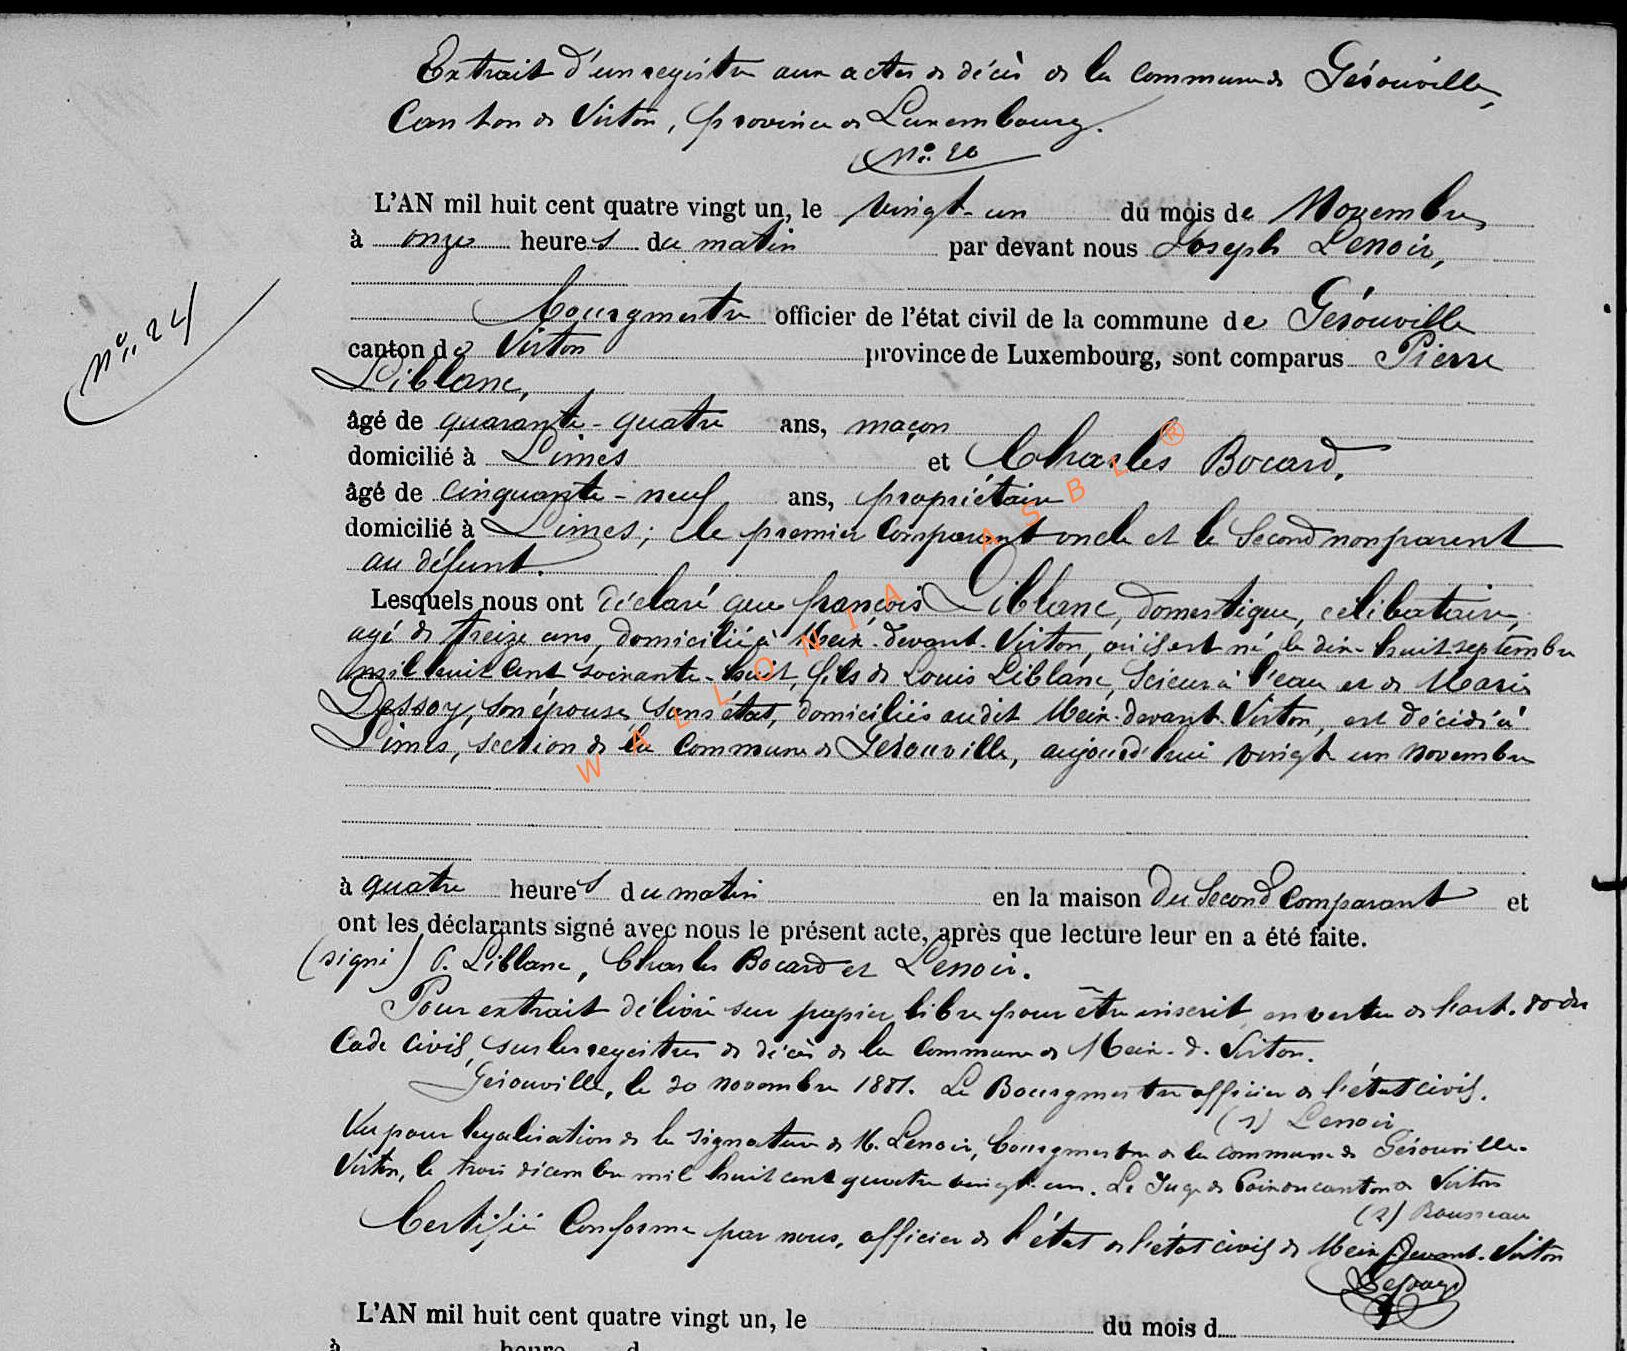 Extrait d'un registre aux actes de décès de la commune de Gérouville,
Canton de Virton, province de Luxembourg.
N° 20
L'AN mil huit cent quatre vingt un, le vingt-un du mois de Novembre
à onze heures du matin par devant nous Joseph Lenoir,
bourgmestre officier de l'état civil de la commune de Gérouville
N° 24
canton de Virton province de Luxembourg, sont comparus Pierre
Liblanc,
âgé de quarante-quatre ans, maçon
domicilié à Limes et Charles Bocard,
âgé de cinquante-neuf ans, propriétaire
domicilié à Limes; le premier comparant oncle et le second non parent
au défunt.
Lesquels nous ont déclaré que françois Liblanc, domestique, célibataire,
agé de treize ans, domicilié à Meix-devant-Virton, où il est né le dix-huit septembre
mil huit cent soixante-huit, fils de Louis Liblanc, Scieur à l'eau et de Marie
Dessoy, son épouse, sans état, domiciliés audit Meix-devant-Virton, est décédé à
Limes, section de la commune de Gérouville, aujourd'hui vingt un novembre
à quatre heures du matin en la maison du second comparant et
ont les déclarants signé avec nous le présent acte, après que lecture leur en a été faite.
(signé) P. Liblanc, Charles Bocard et Lenoir.
Pour extrait délivré sur papier libre pour être inscrit, en vertu de l'art. 80 du
Code civil, sur les registres de décès de la commune de Meix-d-Virton.
Gérouville, le 20 novembre 1881. Le Bourgmestre officier de l'état civil.
(s) Lenoir
Vu pour legalisation de la signature de M. Lenoir, bourgmestre de la commune de Gérouville.
Virton, le trois décembre mil huit cent quatre vingt-un. Le Juge de Paix du canton de Virton
(s) Rousseau
Certifié Conforme par nous, officier de l'état de l'état civil de Meix-devant-Virton
L'AN mil huit cent quatre vingt un, le du mois d
à heure d
WALLONIA ASBL ®